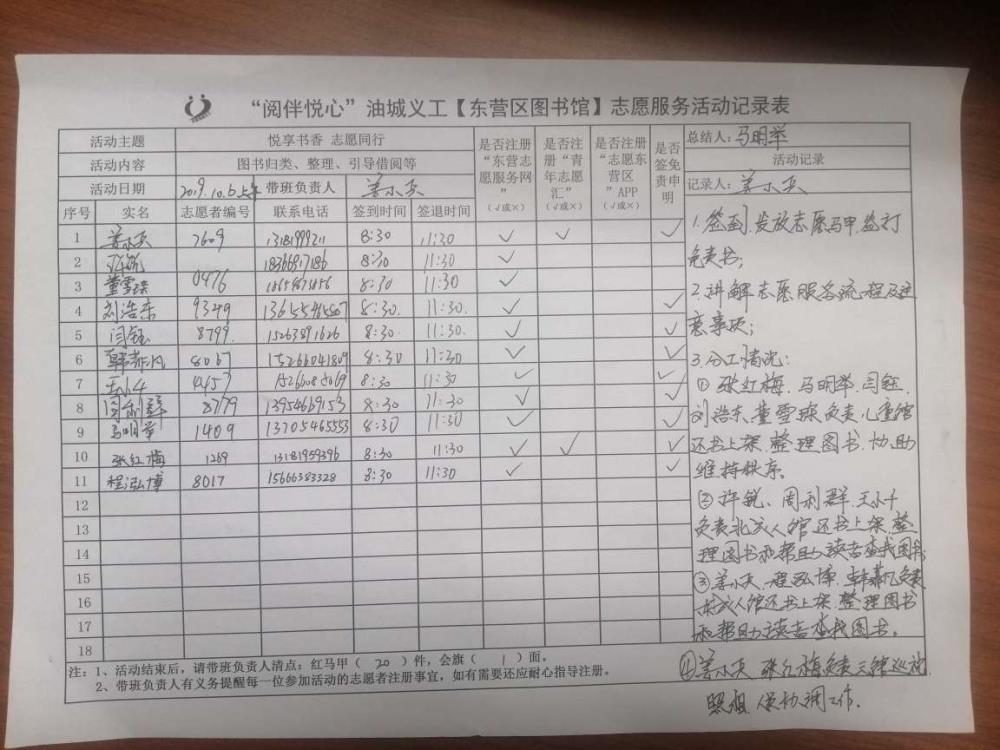 “阅伴悦心”油城义工【东营区图书馆】志愿服务活动记录表
活动主题 悦享书香 志愿同行
活动内容 图书归类、整理、引导借阅等
活动日期 2019.10.6上午 带班负责人 姜小兵
是否注册“东营志愿服务网”(√或×)
是否注册“青年志愿汇”(√或×)
是否注册“志愿东营区”APP(√或×)
是否签免责申明
总结人：马明举
活动记录
记录人：姜小兵
序号 实名 志愿者编号 联系电话 签到时间 签退时间
1 姜小兵 7609 8:30 11:30 √ √ √
2 许锐 8:30 11:30 √
3 董雪琛 0476 8:30 11:30 √
4 刘浩东 9349 8:30. 11:30. √ √
5 闫钰 8799 15263891626 8:30. 11:30. √ √
6 8067 15266041809 8:30 11:30 √ √
7 王小千 8:30 11:30 √ √
8 周利群 8779 13954669153 8:30 11:30 √ √
9 马明举 1409 13705465553 8:30 11:30 √ √
10 张红梅 1269 13181959396 8:30 11:30 √ √ √
11 程泓博 8017 15666383328 8:30 11:30 √ √
12
13
14
15
16
17
18
1.签到,发放志愿马甲.签订
免责书;
2.讲解志愿服务流程及注
意事项;
3.分工情况:
① 张红梅、马明举、闫钰、
刘浩东、董雪琛负责儿童馆
还书上架.整理图书.协助
维持秩序.
② 许锐、周利群、王小千
负责北成人馆还书上架、整
理图书和帮助读者查找图书;
③ 姜小兵、程泓博、负责
东成人馆还书上架、整理图书
和帮助读者查找图书。
④ 姜小兵 张红梅负责三馆巡视
照相 协调工作.
注：1、活动结束后，请带班负责人清点：红马甲（ 20 ）件，会旗（ 1 ）面。
2、带班负责人有义务提醒每一位参加活动的志愿者注册事宜，如有需要还应耐心指导注册。